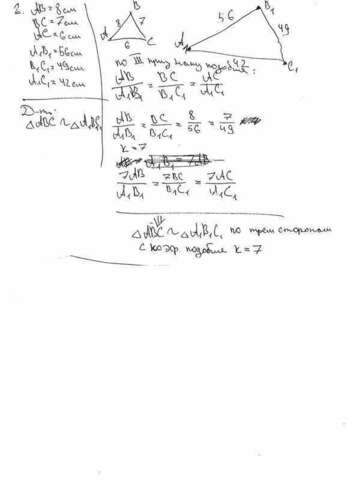 2. AB = 8 см
BC = 7 см
AC = 6 см
A₁B₁ = 56 см
B₁C₁ = 49 см
A₁C₁ = 42 см
Д-ть:
△ABC ~ △A₁B₁C₁
B
8 7
A 6 C
B₁
56 49
A₁ 42 C₁
по III признаку подобия:
AB/A₁B₁ = BC/B₁C₁ = AC/A₁C₁
AB/A₁B₁ = BC/B₁C₁ = 8/56 = 7/49
k = 7
A₁B₁ = 7AB
7AB/A₁B₁ = 7BC/B₁C₁ = 7AC/A₁C₁
III
△ABC ~ △A₁B₁C₁ по трем сторонам
с коэф. подобия k = 7